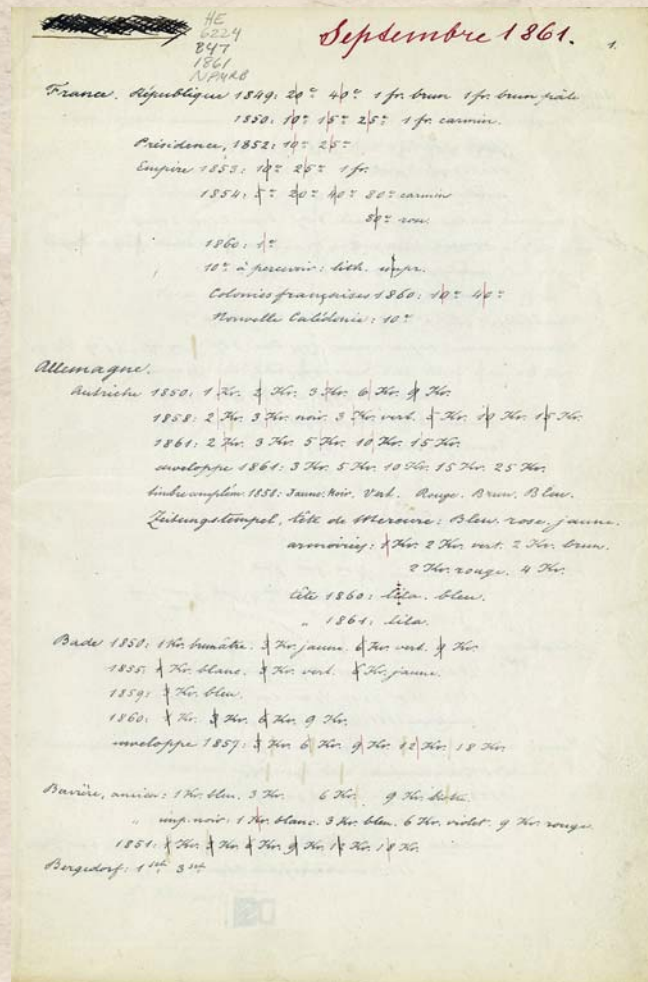 HE
6224
B47
1861
NPMRB
Septembre 1861.
1.
France. République 1849: 20c 40c 1 fr. brun 1 fr. brun pâle
1850: 10c 15c 25c 1 fr. carmin.
Présidence, 1852: 10c 25c
Empire 1853: 10c 25c 1 fr.
1854: 5c 20c 40c 80c carmin
80c rose.
1860: 1c
10c à percevoir: lith. impr.
Colonies françaises 1860: 10c 40c
Nouvelle Calédonie: 10c
Allemagne.
Autriche 1850: 1 Kr. 2 Kr. 3 Kr. 6 Kr. 9 Kr.
1858: 2 Kr. 3 Kr. noir. 3 Kr. vert. 5 Kr. 10 Kr. 15 Kr.
1861: 2 Kr. 3 Kr. 5 Kr. 10 Kr. 15 Kr.
enveloppe 1861: 3 Kr. 5 Kr. 10 Kr. 15 Kr. 25 Kr.
timbre complém. 1858: Jaune. Noir. Vert. Rouge. Brun. Bleu.
Zeitungstempel, tête de Mercure: Bleu. rose. jaune.
armoiries: 1 Kr. 2 Kr. vert. 2 Kr. brun.
2 Kr. rouge. 4 Kr.
tête 1860: lila. bleu.
" 1861: lila.
Bade 1850: 1 Kr. brunâtre. 3 Kr. jaune. 6 Kr. vert. 9 Kr.
1855: 1 Kr. blanc. 3 Kr. vert. 6 Kr. jaune.
1859: 3 Kr. bleu.
1860: 1 Kr. 3 Kr. 6 Kr. 9 Kr.
enveloppe 1857: 3 Kr. 6 Kr. 9 Kr. 12 Kr. 18 Kr.
Bavière, ancien: 1 Kr. bleu. 3 Kr. 6 Kr. 9 Kr.
" imp. noir: 1 Kr. blanc. 3 Kr. bleu. 6 Kr. violet. 9 Kr. rouge.
1851: 1 Kr. 3 Kr. 6 Kr. 9 Kr. 12 Kr. 18 Kr.
Bergedorf: 1 sch. 3 sch.